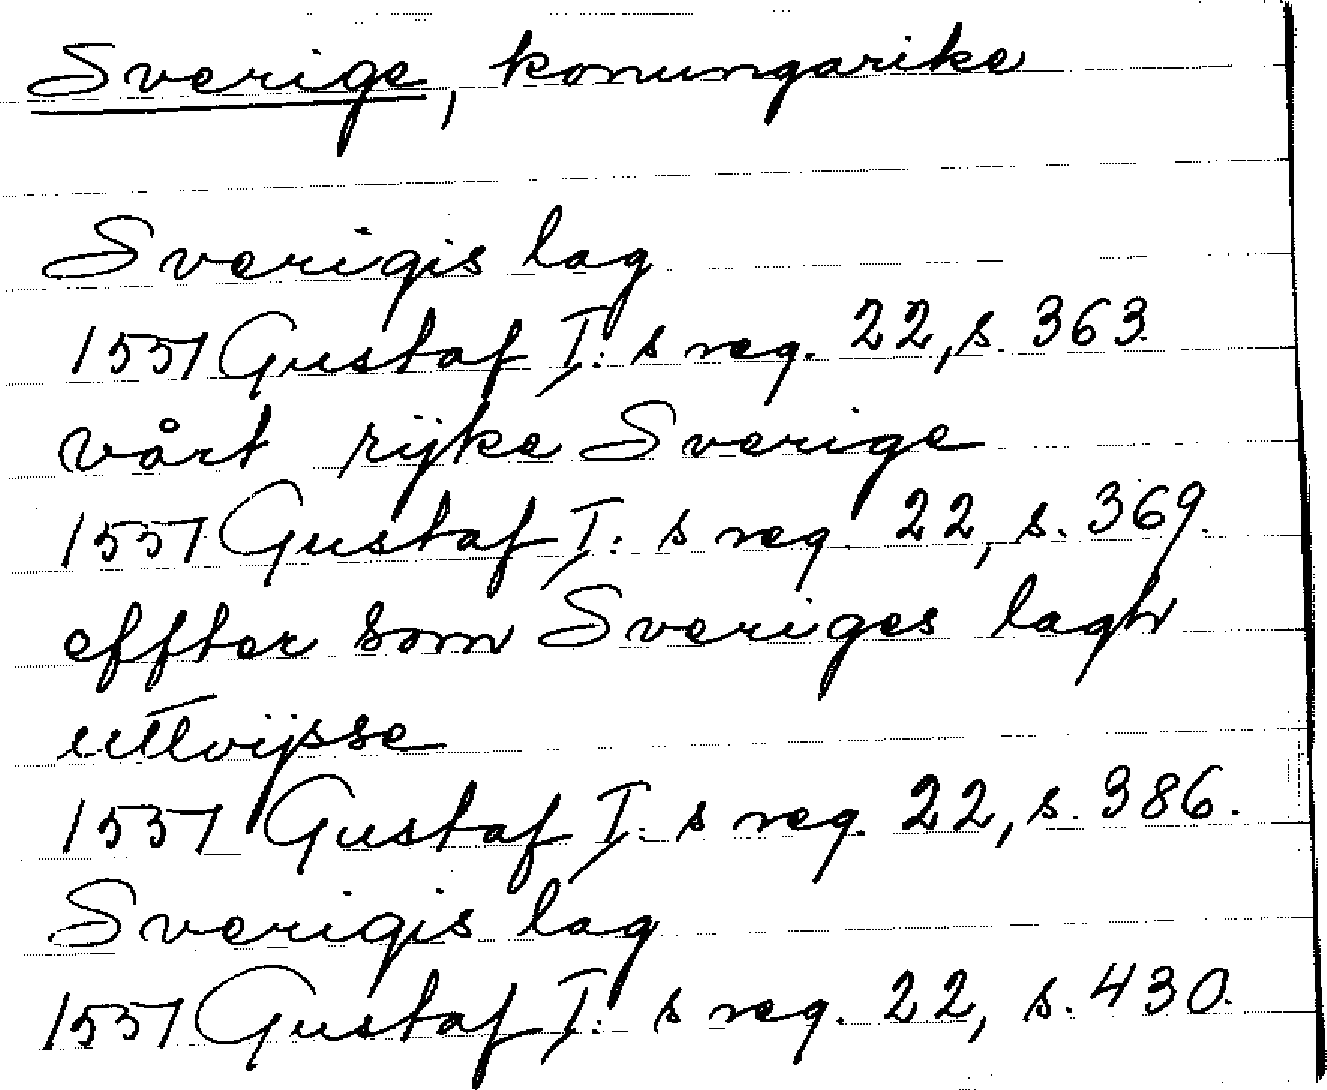 Sverige, konungarike
Sverigis lag
1551 Gustaf I:s reg. 22, s. 363.
vårt rijke Sverige
1551 Gustaf I:s reg. 22, s. 369.
effter som Sveriges lagh
uttvijsse
1551 Gustaf I:s reg. 22, s. 386.
Sverigis lag
1551 Gustaf I:s reg. 22, s. 430.